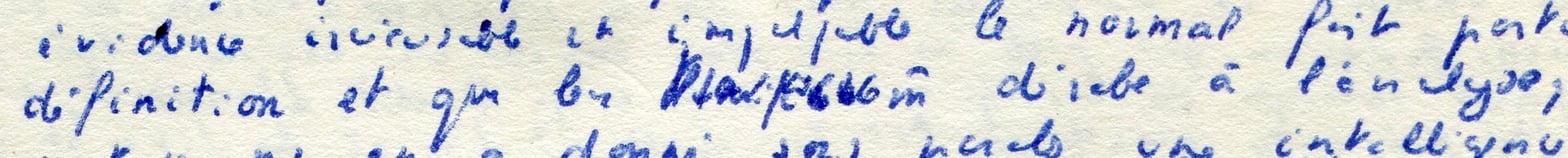 évidence irrécusable et impalpable le normal fait part
définition et que les dérobe à l'analyse,
en a donné sous une intelligence